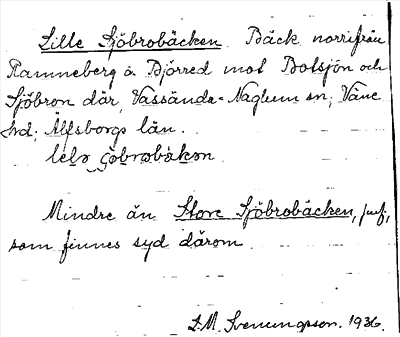 Lille Sjöbrobäcken. Bäck norrifrån
Ramneberg o. Björred mot Botsjön och
Sjöbron där, Vassända-Naglum sn; Väne
hd; Älfsborgs län.
Mindre än Store Sjöbrobäcken, jmf,
som finnes syd därom.
D.M. Svenningsson. 1936.